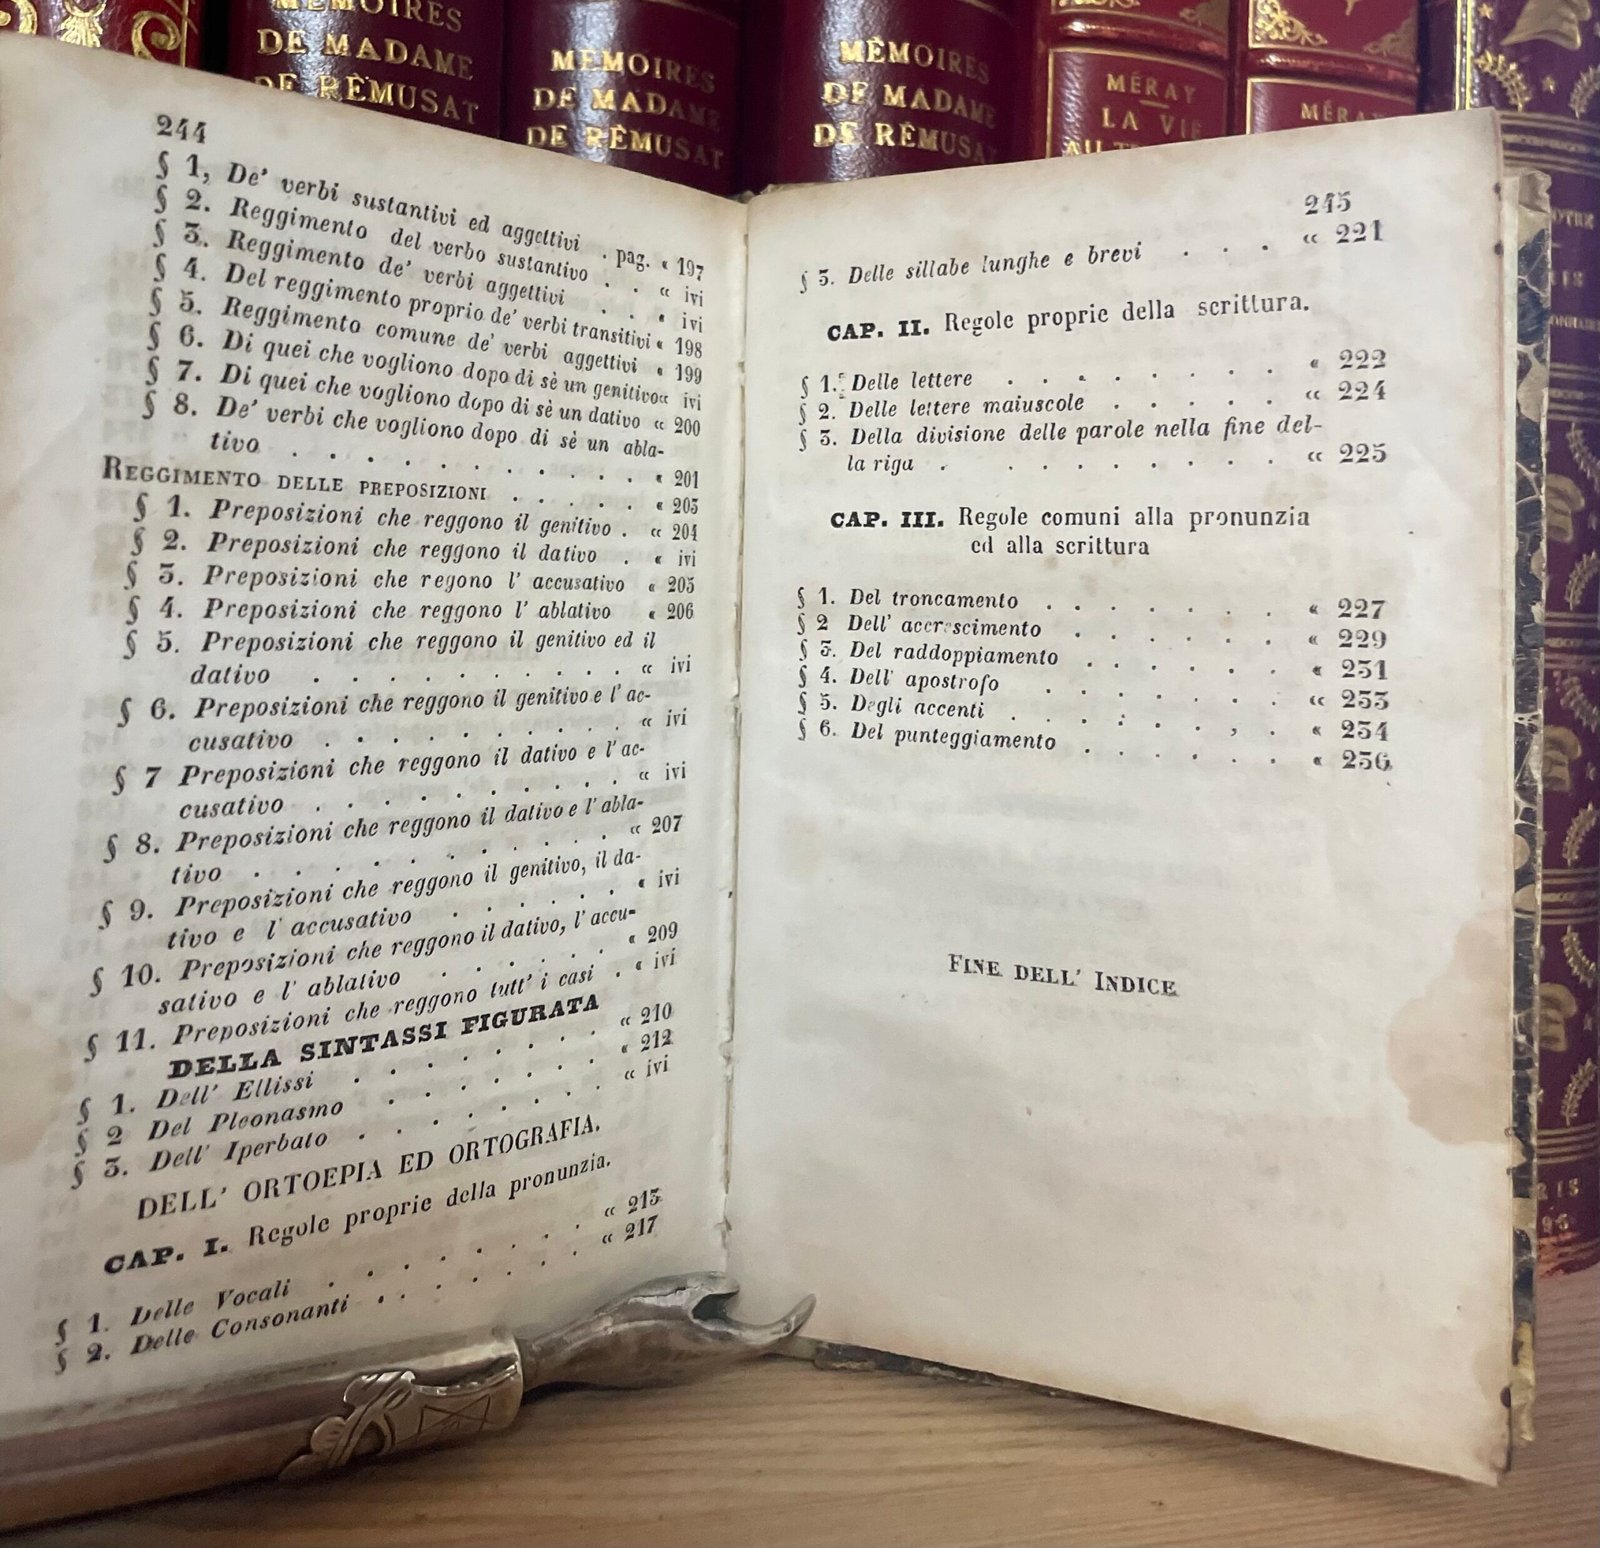 MÉMOIRES
DE MADAME
DE RÉMUSAT
MÉMOIRES
DE MADAME
DE RÉMUSAT
MÉMOIRES
DE MADAME
DE RÉMUSAT
MÉRAY
LA VIE
MÉRAY
244
§ 1, De' verbi sustantivi ed aggettivi . pag. « 197
§ 2. Reggimento del verbo sustantivo . . « ivi
§ 3. Reggimento de' verbi aggettivi . . « ivi
§ 4. Del reggimento proprio de' verbi transitivi « 198
§ 5. Reggimento comune de' verbi aggettivi « 199
§ 6. Di quei che vogliono dopo di sè un genitivo « ivi
§ 7. Di quei che vogliono dopo di sè un dativo « 200
§ 8. De' verbi che vogliono dopo di sè un abla-
tivo . . . . . . . . . . « 201
REGGIMENTO DELLE PREPOSIZIONI . . . . . « 203
§ 1. Preposizioni che reggono il genitivo . « 204
§ 2. Preposizioni che reggono il dativo . « ivi
§ 3. Preposizioni che regono l' accusativo « 205
§ 4. Preposizioni che reggono l' ablativo « 206
§ 5. Preposizioni che reggono il genitivo ed il
dativo . . . . . . . . . « ivi
§ 6. Preposizioni che reggono il genitivo e l' ac-
cusativo . . . . . . . . « ivi
§ 7 Preposizioni che reggono il dativo e l' ac-
cusativo . . . . . . . . « ivi
§ 8. Preposizioni che reggono il dativo e l' abla-
tivo . . . . . . . . . « 207
§ 9. Preposizioni che reggono il genitivo, il da-
tivo e l' accusativo . . . . . « ivi
§ 10. Preposizioni che reggono il dativo, l' accu-
sativo e l' ablativo . . . . . . « 209
§ 11. Preposizioni che reggono tutt' i casi . « ivi
DELLA SINTASSI FIGURATA
§ 1. Dell' Ellissi . . . . . . . « 210
§ 2 Del Pleonasmo . . . . . . « 212
§ 3. Dell' Iperbato . . . . . . . « ivi
DELL' ORTOEPIA ED ORTOGRAFIA.
CAP. I. Regole proprie della pronunzia.
§ 1. Delle Vocali . . . . . . . « 215
§ 2. Delle Consonanti . . . . . . . « 217
245
§ 3. Delle sillabe lunghe e brevi . . . « 221
CAP. II. Regole proprie della scrittura.
§ 1. Delle lettere . . . . . . . . « 222
§ 2. Delle lettere maiuscole . . . . . « 224
§ 3. Della divisione delle parole nella fine del-
la riga . . . . . . . . . « 225
CAP. III. Regole comuni alla pronunzia
ed alla scrittura
§ 1. Del troncamento . . . . . . . « 227
§ 2 Dell' accrescimento . . . . . . « 229
§ 3. Del raddoppiamento . . . . . . « 231
§ 4. Dell' apostrofo . . . . . . . « 233
§ 5. Degli accenti . . . . . . , . « 234
§ 6. Del punteggiamento . . . . . . « 236
FINE DELL' INDICE